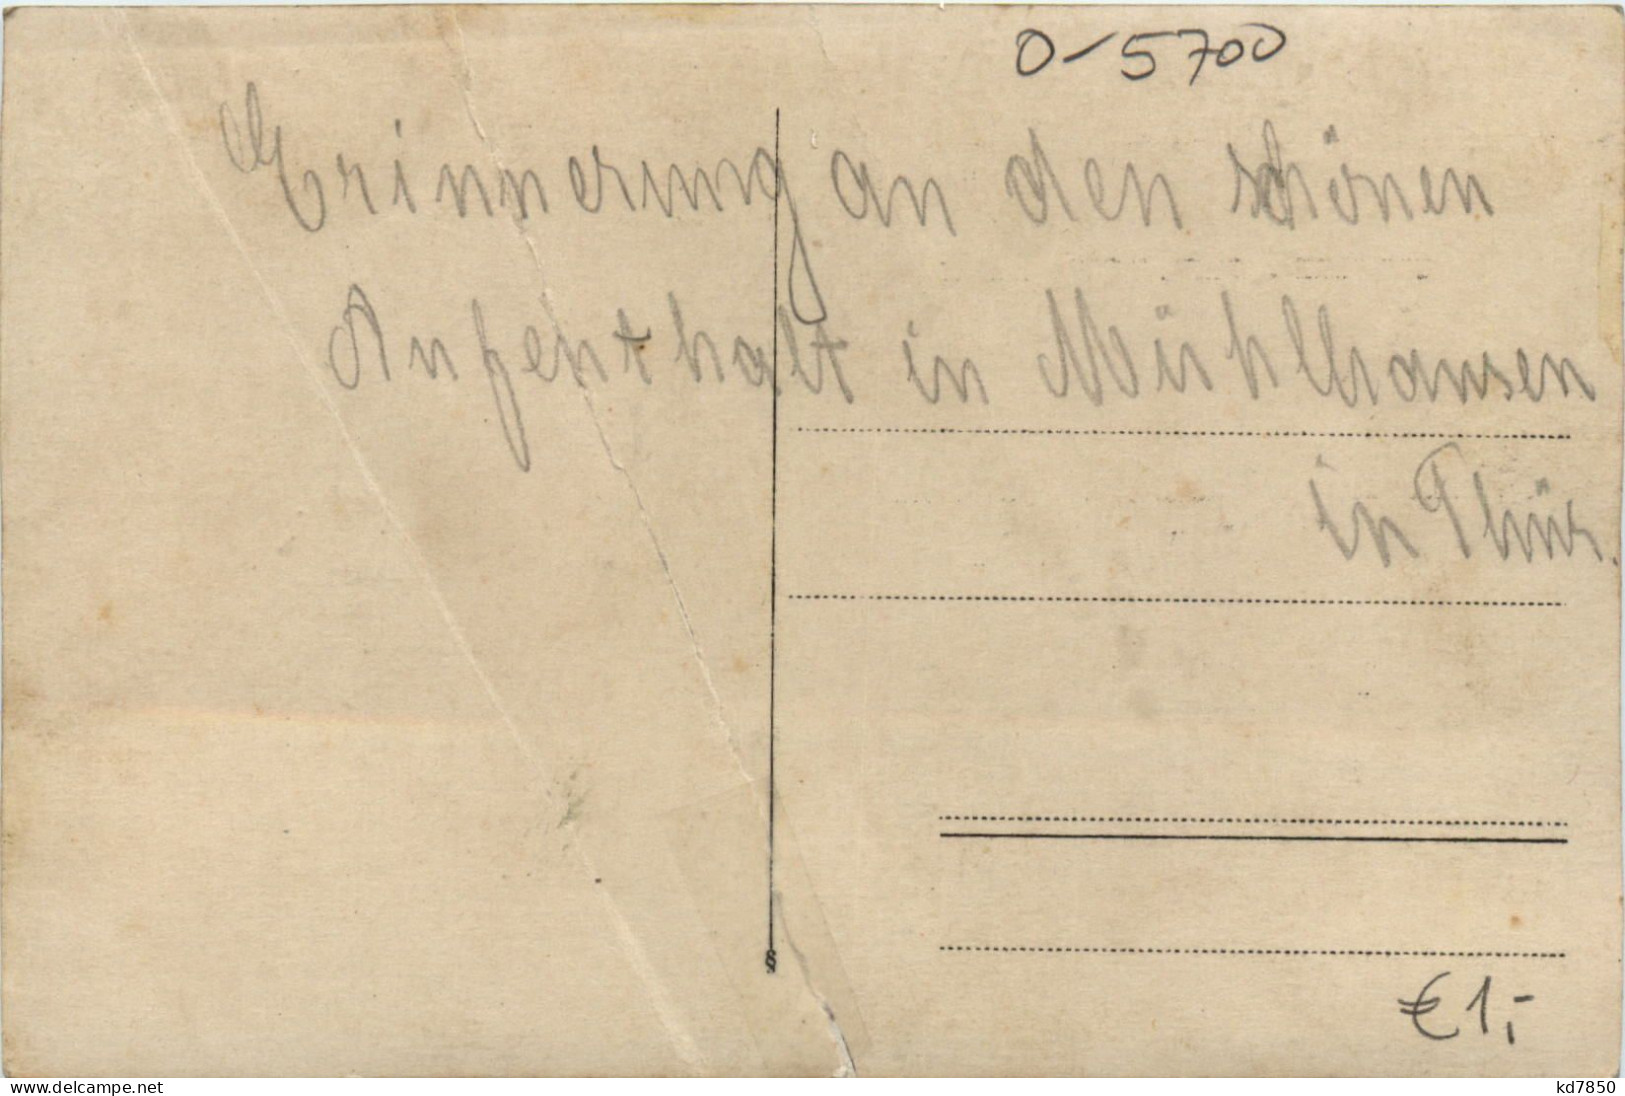 0-5700
Erinnerung an den schönen
Aufenthalt in Mühlhausen
in Thür.
§
€1,-
www.delcampe.net
kd7850